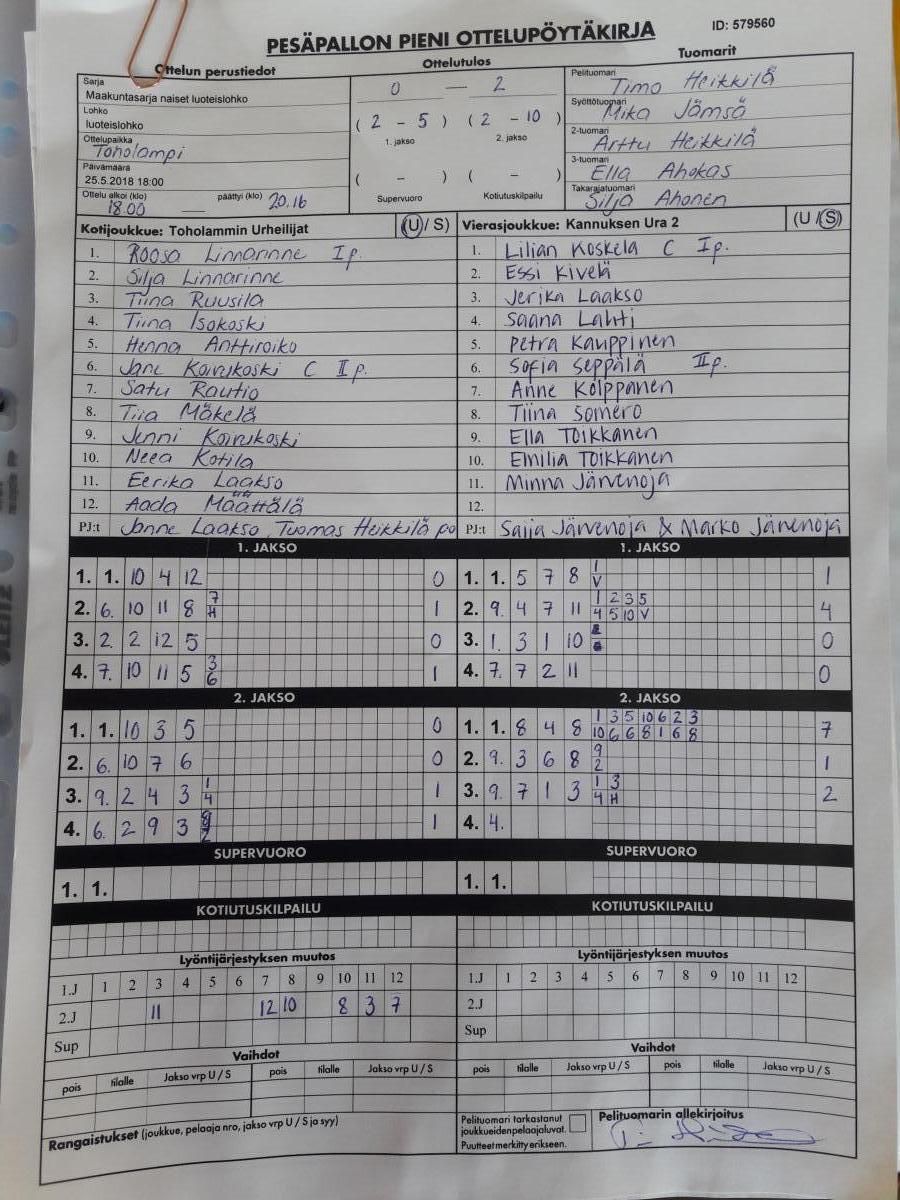 PESÄPALLON PIENI OTTELUPÖYTÄKIRJA
ID: 579560
Ottelun perustiedot
Ottelutulos
Tuomarit
Sarja
Maakuntasarja naiset luoteislohko
Lohko
luoteislohko
Ottelupaikka
Toholampi
Päivämäärä
25.5.2018 18:00
Ottelu alkoi (klo) 18.00 — päättyi (klo) 20.16
0 — 2
( 2 - 5 ) ( 2 - 10 )
1. jakso 2. jakso
( - ) ( - )
Supervuoro Kotiutuskilpailu
Pelituomari Timo Heikkilä
Syöttötuomari Mika Jämsä
2-tuomari Arttu Heikkilä
3-tuomari Ella Ahokas
Takarajatuomari Silja Ahonen
Kotijoukkue: Toholammin Urheilijat (U/ S)
1. Roosa Linnarinne Ip.
2. Silja Linnarinne
3. Tiina Ruusila
4. Tiina Isokoski
5. Henna Anttiroiko
6. Jane Koivukoski C IIp.
7. Satu Rautio
8. Tiia Mäkelä
9. Jenni Koivukoski
10. Neea Kotila
11. Eerika Laakso
12. Aada Määttälä
PJ:t Janne Laakso, Tuomas Heikkilä po
Vierasjoukkue: Kannuksen Ura 2 (U /S)
1. Lilian Koskela C Ip.
2. Essi Kivelä
3. Jerika Laakso
4. Saana Lahti
5. Petra Kauppinen
6. Sofia Seppälä IIp.
7. Anne Kolppanen
8. Tiina Somero
9. Ella Toikkanen
10. Emilia Toikkanen
11. Minna Järvenoja
12.
PJ:t Saija Järvenoja & Marko Järvenoja
1. JAKSO
1. 1. 10 4 12 0
2. 6. 10 11 8 7 H 1
3. 2. 2 12 5 0
4. 7. 10 11 5 3 6 1
1. JAKSO
1. 1. 5 7 8 1 V 1
2. 9. 4 7 11 1 2 3 5 4
4 5 10 V
3. 1. 3 1 10 0
4. 7. 7 2 11 0
2. JAKSO
1. 1. 10 3 5 0
2. 6. 10 7 6 0
3. 9. 2 4 3 1 4 1
4. 6. 2 9 3 1
2. JAKSO
1. 1. 8 4 8 1 3 5 10 6 2 3 7
10 6 6 8 1 6 8
2. 9. 3 6 8 9 2 1
3. 9. 7 1 3 1 3 2
4 H
4. 4.
SUPERVUORO
1. 1.
SUPERVUORO
1. 1.
KOTIUTUSKILPAILU
KOTIUTUSKILPAILU
Lyöntijärjestyksen muutos
1.J 1 2 3 4 5 6 7 8 9 10 11 12
2.J 11 12 10 8 3 7
Sup
Lyöntijärjestyksen muutos
1.J 1 2 3 4 5 6 7 8 9 10 11 12
2.J
Sup
Vaihdot
pois tilalle Jakso vrp U / S pois tilalle Jakso vrp U / S
Vaihdot
pois tilalle Jakso vrp U / S pois tilalle Jakso vrp U / S
Rangaistukset (joukkue, pelaaja nro, jakso vrp U / S ja syy)
Pelituomari tarkastanut
joukkueiden pelaajaluvat.
Puutteet merkitty erikseen.
Pelituomarin allekirjoitus